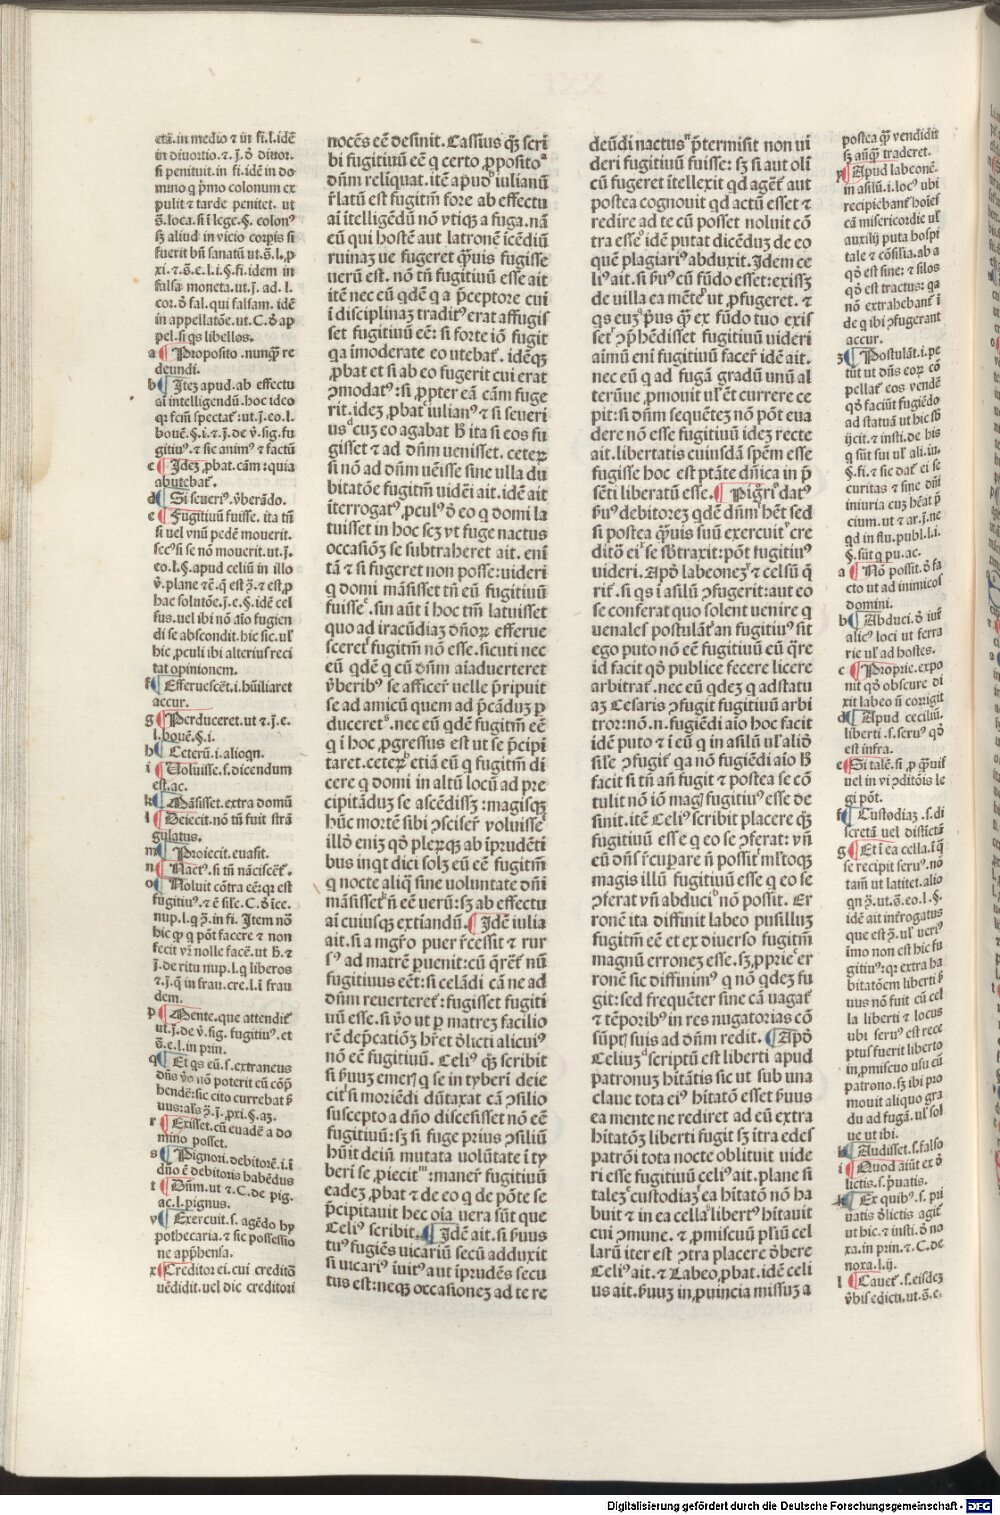 etā.in medio ⁊ in fi.l.idē
in diuortio.⁊.j.ð diuor.
si penituit.in fi.idē in do
mino q pͥmo colonum ex
pulit ⁊ tarde penitet. ut
s̄.loca.si i lege.§.colonꝰ
sꝫ aliud in vicio corpis si
fuerit bn̄ sanatū ut.s̄.l.ꝓ
xi.⁊.s̄.e.l.i.§.fi.idem in
falsa moneta.ut.j.ad.l.
cor.ð fal.qui falsam.idē
in appellatōe.ut.C.ð ap
pel.si qs libellos.
a Proposito.nunqꝫ re
deundi.
b Itez apud.ab effectu
aī intelligendū.hoc ideo
qꝛ fcm̄ spectat᷑:ut.j.eo.l.
bouē.§.i.⁊.j.de v̄.sig.fu
gitiuꝰ.⁊ sic animꝰ ⁊ factū
c Idez ꝓbat.cām:quia
abutebat᷑.
d Si seueriꝰ.v̄berādo.
e Fugitiuū fuisse.ita tn̄
si uel vnū pedē mouerit.
secꝰ si se nō mouerit.ut.j.
eo.l.§.apud celiū in illo
v̄.plane ⁊ē.q est ꝫ̄.⁊ est ꝓ
hac solutōe.j.e.§.idē cel
sus.uel ibi nō aīo fugien
di se abscondit.hic sic.ul᷑
hic ꝓculi ibi alterius reci
tat opinionem.
f Efferuescēt.i.hūiliaret
accur.
g Perduceret.ut ⁊.j.e.
l.bouē.§.i.
h Ceterū.i.alioqn.
i Uoluisse.s.dicendum
est.ac.
k Māsisset.extra domū
l Deiecit.nō tn̄ fuit strā
gulatus.
m Proiecit.euasit.
n Nactꝰ.si tn̄ nāciscēt᷑.
o Noluit cōtra eē:qꝛ est
fugitiuꝰ.⁊ ē sile.C.ð īce.
nup.l.q ꝫ̄.in fi. Item nō
hic qꝛ q pōt facere ⁊ non
fecit vr̄ nolle facē.ut h̄.⁊
j.de ritu nup.l.q liberos
⁊.j.q̄ in frau.cre.l.ī frau
dem.
p Mente.que attendit᷑
ut.j.de v̄.sig.fugitiuꝰ.et
s̄.e.l.in prin.
q Et qs eū.s.extraneus
dn̄s v̄o nō poterit eū cōp̄
hendē:sic cito currebat ẜ
uus:als ꝫ̄.j.ꝓxi.§.aꝫ.
r Exisset.cū euadē a do
mino posset.
s Pignori.debitorē.i.ī
dn̄o ē debitoris habēdus
t Dn̄m.ut ⁊.C.de pig.
ac.l.pignus.
v Exercuit.s.agēdo hy
pothecaria.⁊ sic possessio
ne app̄hensa.
x Creditor ei.cui creditō
uēdidit.uel dic creditori
nocēs eē desinit.Cassius qꝫ scri
bi fugitiuū eē q certo ꝓposito
dn̄m reliquat.itē apud iulianū
r̄latū est fugitm̄ fore ab effectu
aī ītelligēdū nō vtiqꝫ a fuga.nā
eū qui hostē aut latronē īcēdiū
ruinaꝫ ue fugeret qͣuis fugisse
uerū est.nō tn̄ fugitiuū esse ait
itē nec eū qdē q a p̄ceptore cui
ī disciplinaꝫ traditꝰ erat affugis
set fugitiuū eē:si forte iō fugit
qa īmoderate eo utebat᷑.idēqꝫ
ꝓbat et si ab eo fugerit cui erat
ꝯmodatꝰ:si ꝓpter eā cām fuge
rit.idez ꝓbat iulianꝰ ⁊ si seueri
us cuꝫ eo agabat h̄ ita si eos fu
gisset ⁊ ad dn̄m uenisset.ceteꝝ
si nō ad dn̄m uēisse sine ulla du
bitatōe fugitm̄ uidēi ait.idē ait
īterrogatꝰ ꝓculꝰ ð eo q domi la
tuisset in hoc scꝫ vt fuge nactus
occasiōꝫ se subtraheret ait. eni
tā ⁊ si fugeret non posse:uideri
q domi māsisset tn̄ eū fugitiuū
fuisse.sin aūt ī hoc tm̄ latuisset
quo ad iracūdiaꝫ dn̄oꝝ efferue
sceret fugitm̄ nō esse.sicuti nec
eū qdē q cū dn̄m aīaduerteret
v̄beribꝰ se afficer̄ uelle p̄ripuit
se ad amicū quem ad p̄cāduꝫ ꝑ
duceret.nec eū qdē fugitm̄ eē
q ī hoc ꝓgressus est ut se p̄cipi
taret.ceteꝝ etiā eū q fugitm̄ di
cere q domi in altū locū ad pre
cipitāduꝫ se ascēdissꝫ:magisqꝫ
hūc mortē sibi ꝯsciser̄ voluisse
illō eniꝫ qō pleꝝqꝫ ab īprudēti
bus inqt dici solꝫ eū eē fugitm̄
q nocte aliq̄ sine uoluntate dn̄i
māsisset n̄ eē uerū:sꝫ ab effectu
ai cuiusqꝫ extīandū. Idē iulia
ait.si a mgr̄o puer r̄cessit ⁊ rur
sꝰ ad matrē ꝑuenit:cū q̄ret᷑ nū
fugitiuus eēt:si celādi cā ne ad
dn̄m reuerteret᷑:fugisset fugiti
uū esse.si v̄o ut ꝑ matreꝫ facilio
rē dep̄catiōꝫ hr̄et ðlicti alicuiꝰ
nō eē fugitiuū. Celiꝰ qꝫ scribit
si ẜuuꝫ emer̄ q se in tyberī deie
cit si moriēdi dūtaxat cā ꝯsilio
suscepto a dn̄o discessisset nō eē
fugitiuū:sꝫ si fuge prius ꝯsiliū
hūit deiñ mutata volūtate ī ty
beri se ꝓiecit:maner̄ fugitiuū
eadeꝫ ꝓbat ⁊ de eo q de pōte se
p̄cipitauit hec oīa uera sūt que
Celiꝰ scribit. Idē ait.si ẜuus
tuꝰ fugiēs uicariū secū adduxit
si uicariꝰ īuitꝰ aut īprudēs secu
tus est:neqꝫ occasioneꝫ ad te re
deūdi nactus p̄termisit non ui
deri fugitiuū fuisse: sꝫ si aut oli
cū fugeret ītellexit qd agēt᷑ aut
postea cognouit qd actū esset ⁊
redire ad te cū posset noluit cō
tra esse idē putat dicēduꝫ de eo
quē plagiariꝰ abduxit.Idem ce
liꝰ ait.si ẜuꝰ cū fūdo esset:exissꝫ
de uilla ea mēte ut ꝓfugeret. ⁊
qs euꝫ pͥus qꝫ ex fūdo tuo exis
set ꝯp̄hēdisset fugitiuū uideri
aīmū eni fugitiuū facer̄ idē ait.
nec eū q ad fugā gradū unū al
terūue ꝓmouit ul᷑ et currere ce
pit:si dn̄m sequēteꝫ nō pōt eua
dere nō esse fugitiuū ideꝫ recte
ait.libertatis cuiusdā spēm esse
fugisse hoc est ptāte dn̄ica in p̄
sēti liberatū esse. Pigr̄i datꝰ
ẜuꝰ debitoreꝫ qdē dn̄m hēt sed
si postea qͣuis suū exercuit cre
ditō ei se sb̄traxit:pōt fugitiuꝰ
uideri.Apð labeoneꝫ ⁊ celsū q̄
rit᷑.si qs ī asilū ꝯfugerit:aut eo
se conferat quo solent uenire q
uenales postulāt an fugitiuꝰ sit
ego puto nō eē fugitiuū eū q̄re
id facit qð publice fecere licere
arbitrat᷑.nec eū qdeꝫ q adstatu
aꝫ Cesaris ꝯfugit fugitiuū arbi
tror:nō.n.fugiēdi aīo hoc facit
idē puto ⁊ ī eū q in asilū ul᷑ aliō
sile ꝯfugit qa nō fugiēdi aīo h̄
facit si tn̄ añ fugit ⁊ postea se cō
tulit nō iō magꝭ fugitiuꝰ esse de
sinit.itē Celiꝰ scribit placere qꝫ
fugitiuū esse q eo se ꝯferat:vn̄
eū dn̄s r̄cupare n̄ possit ml̄toqꝫ
magis illū fugitiuū esse q eo se
ꝯferat vn̄ abduci nō possit. Er
ronē ita diffinit labeo pusilluꝫ
fugitm̄ eē et ex diuerso fugitm̄
magnū erroneꝫ esse.sꝫ ꝓprie er
ronē sic diffinimꝰ q nō qdeꝫ fu
git:sed frequēter sine cā uagat᷑
⁊ tēporibꝰ in res nugatorias cō
sūptꝭ suis ad dn̄m redit. Apð
Celiuꝫ scriptū est liberti apud
patronuꝫ hītātis sic ut sub una
claue tota eiꝰ hītatō esset ẜuus
ea mente ne rediret ad eū extra
hītatōꝫ liberti fugit sꝫ ītra edes
patrōi tota nocte oblituit uide
ri esse fugitiuū celiꝰ ait.plane si
taleꝫ custodiaꝫ ea hītatō nō ha
buit ⁊ in ea cella libertꝰ hītauit
cui ꝯmune.⁊ ꝓmiscuū pl̄iū cel
larū iter est ꝯtra placere ðbere
Celiꝰ ait.⁊ Labeo ꝓbat.idē celi
us ait.ẜuuꝫ in ꝓuincia missuꝫ a
postea qꝫ vendidit
sꝫ anqꝫ traderet.
y Apud labeonē.
in asilū.i.locꝰ ubi
recipiebant᷑ hoīes
cā misericordie ul᷑
auxilij puta hospi
tale ⁊ cōsilia.ab a
qð est sine: ⁊ silos
qð est tractus: qa
nō extrahebant᷑ ī
de q ibi ꝯfugerant
accur.
z Postulāt.i.pe
tūt ut dn̄s eoꝝ cō
pellat᷑ eos vendē
qð faciūt fugiēdo
ad statuā ut hic sb̄
ijcit.⁊ insti.de his
q sūt sui ul᷑ ali.iu.
§.fi.⁊ sic dat᷑ ei se
curitas ⁊ sine dn̄i
iniuria cuꝫ hēat p̄
cium.ut ⁊ ar.j.ne
qd in flu.publ.l.i.
§.sūt q pu.ac.
a Nō possit.ð fa
cto ut ad inimicos
domini.
b Abduci.ð iur̄
alicꝰ loci ut ferra
rie ul᷑ ad hostes.
c Proprie.expo
nit qð obscure di
xit labeo n̄ corrigit
d Apud ceciliū.
liberti.s.seruꝰ qð
est infra.
e Si talē.s.ꝓ qͣuis
uel in vi ꝯditōis le
gi pōt.
f Custodiaꝫ.s.di
scretā uel distictā
g Et ī ea cella.ī q̄
se recipit seruꝰ.nō
tam̄ ut latitet.alio
qn ꝫ̄.ut.s̄.eo.l.§.
idē ait interrogatus
que est ꝫ̄.ul᷑ ueri
imo non est hic fu
gitiuꝰ:qꝛ extra ha
bitatōem liberti ẜ
uus nō fuit cū cel
la liberti ⁊ locus
ubi seruꝰ est rece
ptus fuerit liberto
in ꝓmiscuo usu cū
patrono.sꝫ ibi pro
mouit aliquo gra
du ad fugā.ul᷑ sol
ue ut ibi.
h Audisset.s.falso
i Quod aiūt ex ð
lictis.s.p̄uatis.
k Ex quibꝰ.s.pri
uatis ðlictis agit᷑
ut hic.⁊ insti.ð no
xa.in prin.⁊.C.de
noxa.l.ij.
l Cauet᷑.s.eisdeꝫ
v̄bis edicti.ut.s̄.e.
Digitalisierung gefördert durch die Deutsche Forschungsgemeinschaft - DFG